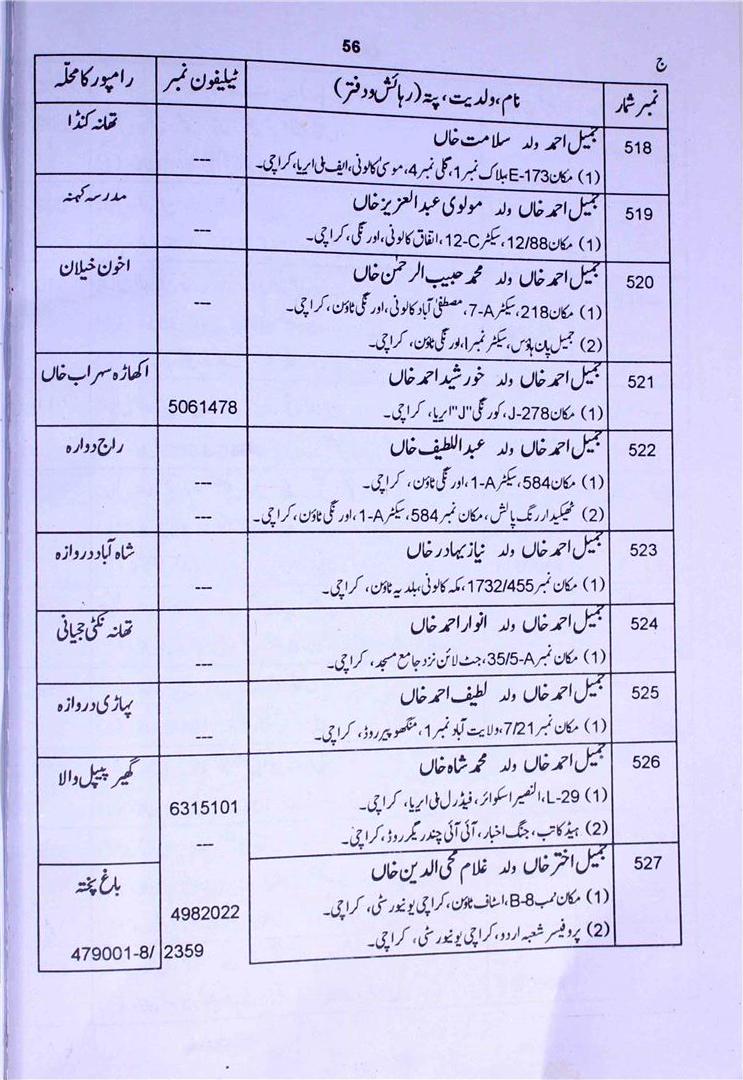 56
ج
نمبر شمار	نام، ولدیت، پتہ (رہائش و دفتر)	ٹیلیفون نمبر	رامپور کا محلّہ
518	جمیل احمد ولد سلامت خاں	تھانہ کنڈا
(1) مکان E-173 بلاک نمبر 1، گلی نمبر 4، موسیٰ کالونی، ایف بی ایریا، کراچی۔	---
519	جمیل احمد خاں ولد مولوی عبدالعزیز خاں	مدرسہ کہنہ
(1) مکان 12/88، سیکٹر 12-C، اتفاق کالونی، اورنگی، کراچی۔	---
520	جمیل احمد خاں ولد محمد حبیب الرحمٰن خاں	اخون خیلان
(1) مکان 218، سیکٹر 7-A، مصطفیٰ آباد کالونی، اورنگی ٹاؤن، کراچی۔	---
(2) جمیل پان ہاؤس، سیکٹر I، اورنگی ٹاؤن، کراچی۔
521	جمیل احمد خاں ولد خورشید احمد خاں	اکھاڑہ سہراب خاں
(1) مکان J-278، کورنگی "J" ایریا، کراچی۔	5061478
522	جمیل احمد خاں ولد عبداللطیف خاں	راج دوارہ
(1) مکان 584، سیکٹر 1-A، اورنگی ٹاؤن، کراچی۔	---
(2) ٹھیکیدار رنگ پالش، مکان نمبر 584، سیکٹر 1-A، اورنگی ٹاؤن، کراچی۔	---
523	جمیل احمد خاں ولد نیاز بہادر خاں	شاہ آباد دروازہ
(1) مکان نمبر 1732/455، مکہ کالونی، بلدیہ ٹاؤن، کراچی۔	---
524	جمیل احمد خاں ولد انوار احمد خاں	تھانہ نکٹی جیانی
(1) مکان نمبر 35/5-A، جٹ لائن نزد جامع مسجد، کراچی۔	---
525	جمیل احمد خاں ولد لطیف احمد خاں	پہاڑی دروازہ
(1) مکان نمبر 7/21، ولایت آباد نمبر 1، منگھوپیر روڈ، کراچی۔	---
526	جمیل احمد خاں ولد محمد شاہ خاں	گھیر پیپل والا
(1) L-29، النصیر اسکوائر، فیڈرل بی ایریا، کراچی۔	6315101
(2) ہیڈ کاتب، جنگ اخبار، آئی آئی چندریگر روڈ، کراچی۔	---
527	جمیل اختر خاں ولد غلام محی الدین خاں	باغ پختہ
(1) مکان نمب B-8، اسٹاف ٹاؤن، کراچی یونیورسٹی، کراچی۔	4982022
(2) پروفیسر شعبہ اردو، کراچی یونیورسٹی، کراچی۔	479001-8/ 2359